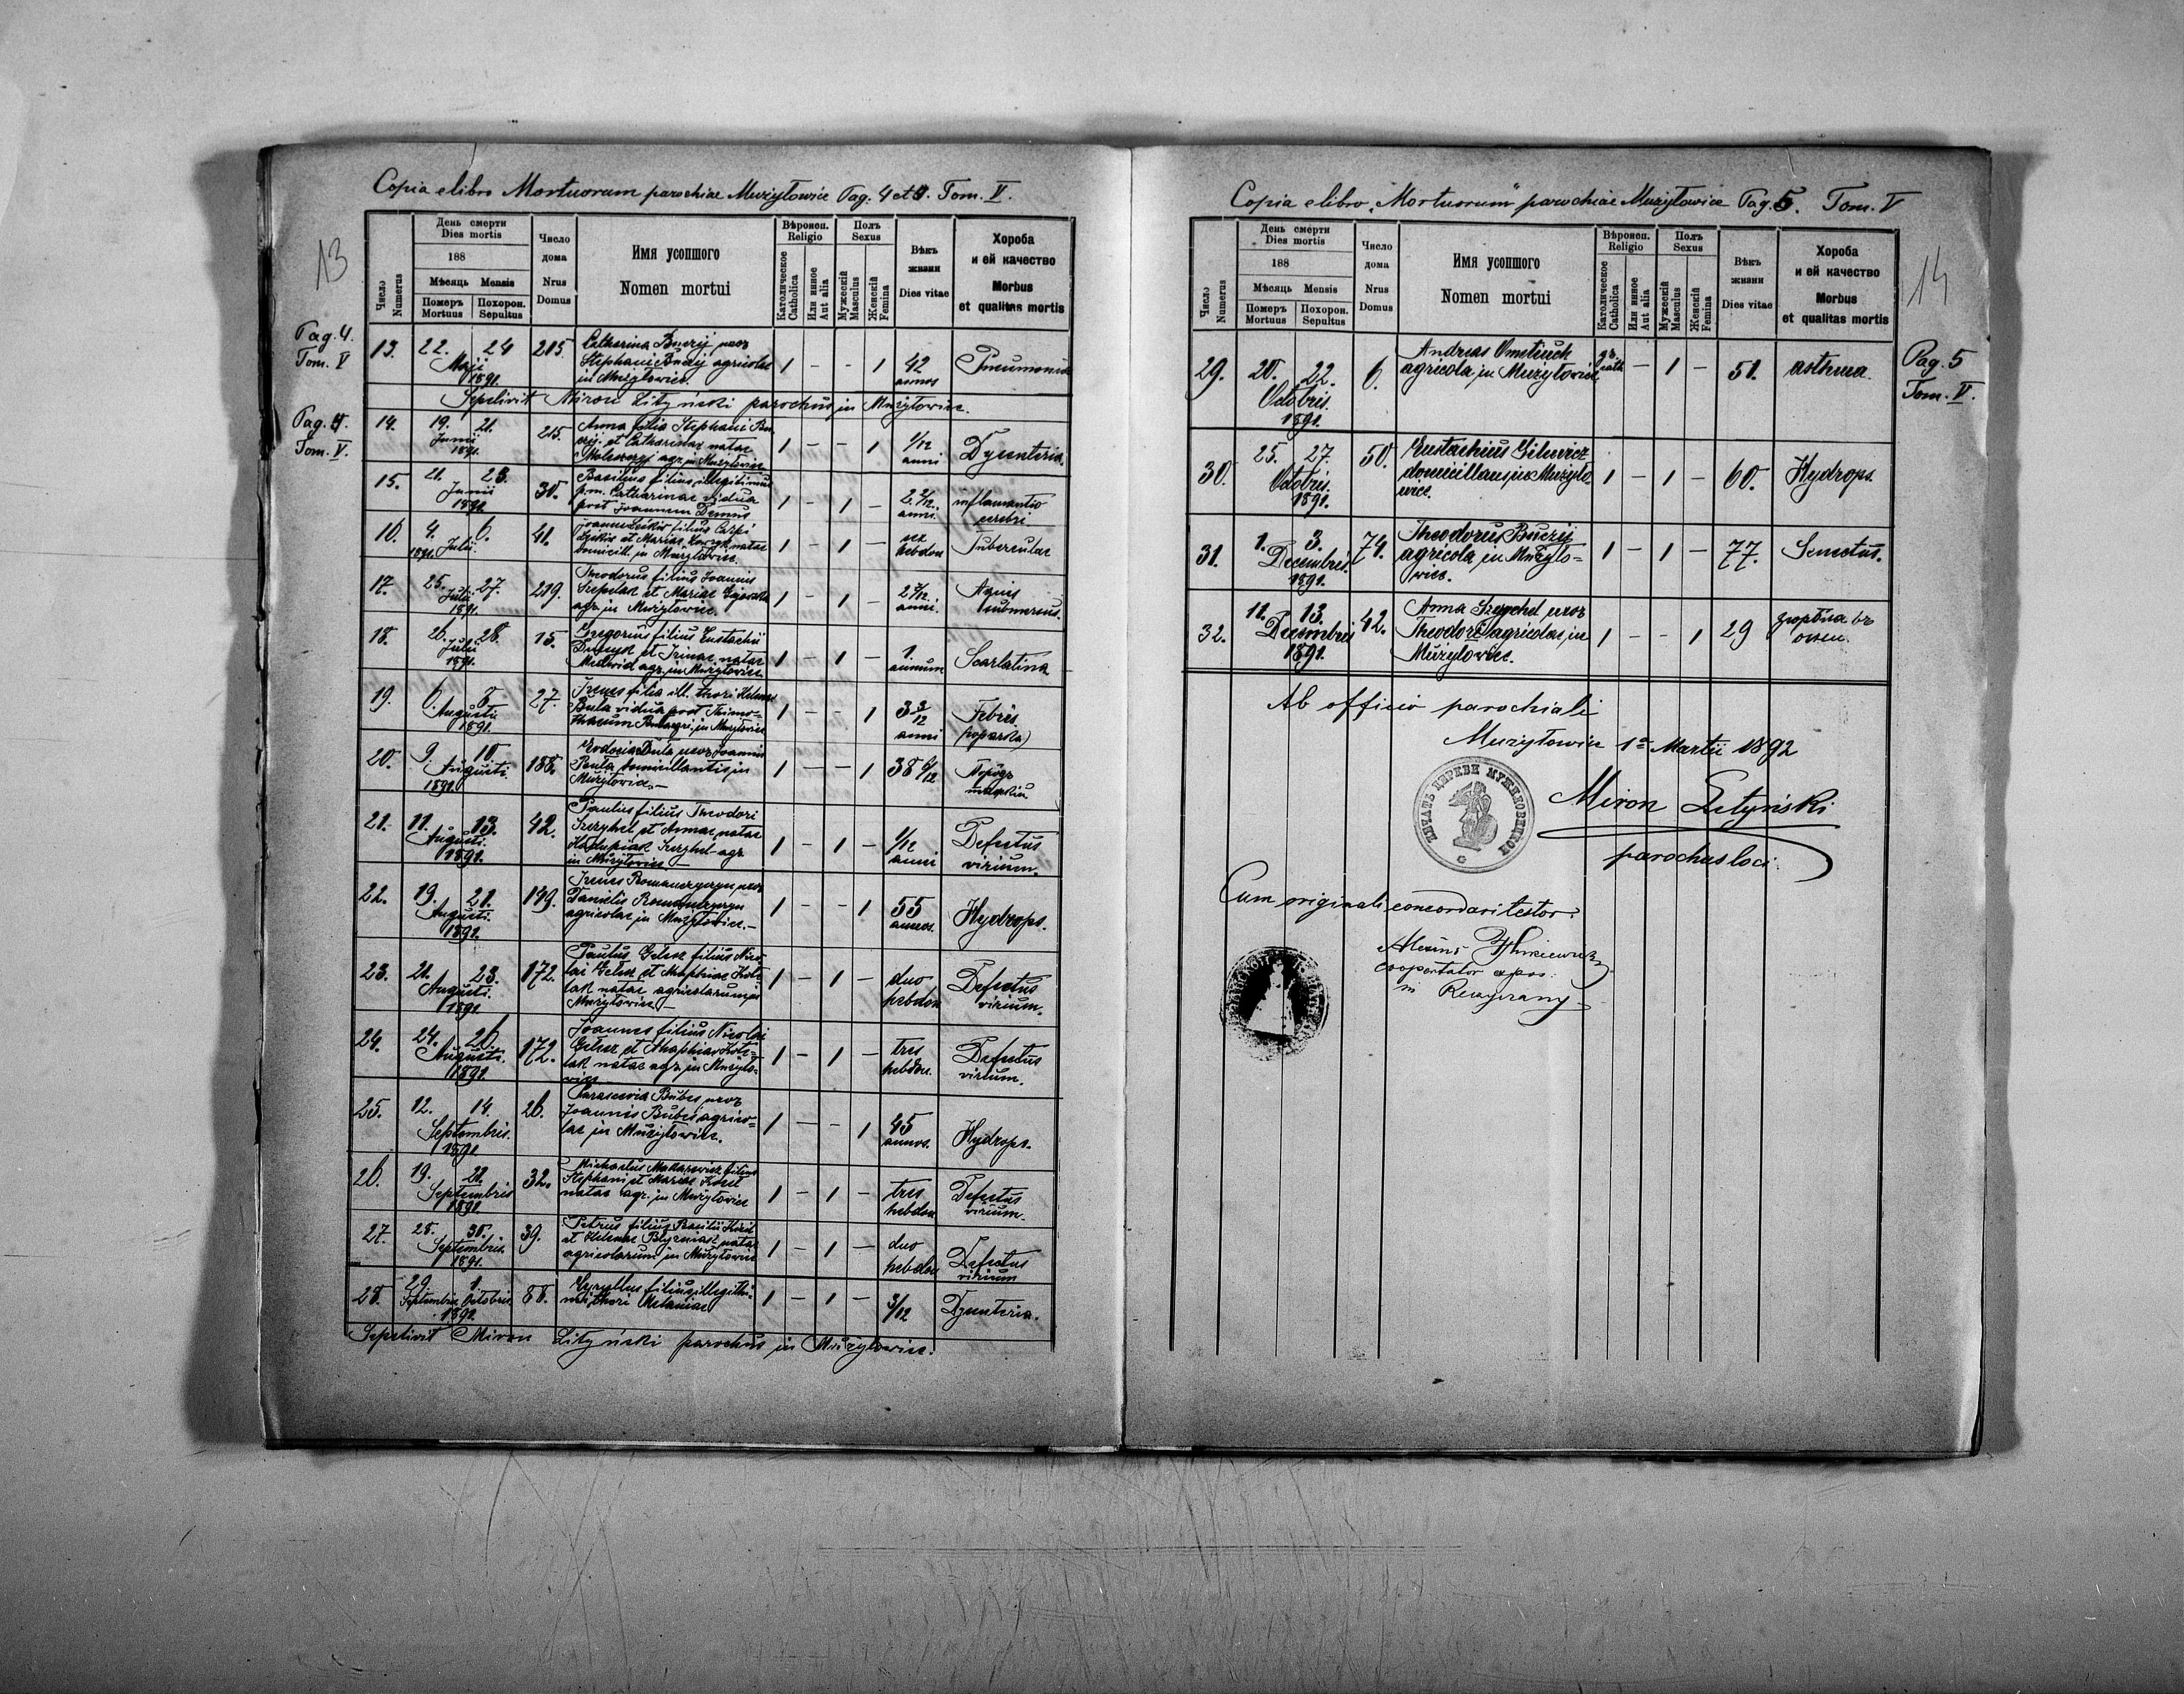 Copia e libro Mortuorum parochiae Mużyłowice Pag: 4 et 5. Tom. V.
13
День смерти
Dies mortis
188
Мѣсяць Mensis
Число
Numerus
Померъ
Mortuus
Похорон.
Sepultus
Число
дома
Nrus
Domus
Имя усопшого
Nomen mortui
Вѣроисп.
Religio
Католическое
Catholica
Или инное
Aut alia
Полъ
Sexus
Мужескій
Masculus
Женскій
Femina
Вѣкъ
жизни
Dies vitae
Хороба
и ей качество
Morbus
et qualitas mortis
Pag. 4.
Tom. V
13. 22. 24 Maji 1891. 215.
Catharina Buczij uxor
Stephani Buczij agricolae
in Mużyłowice.
1 - - 1 42 annos Pneumonia
Sepelivit Miron Lityński parochus in Mużyłowice.
Pag. 4.
Tom. V.
14. 19. 21. Junii 1891. 215.
Anna filia Stephani Bu-
czij et Catharinae natae
agr. in Mużyłowice
1 - - 1 1/12 anni Dysenteria.
15. 21. 23. Junii 1891. 30.
Basilius filius illegitimus
p.m. Catharinae vidua
post Joannem Demus
1 - 1 - 2 2/12 anni. inflamantio cerebri
16. 4. 6. Julii 1891. 41.
filius
et Mariae natae
domicill. in Mużyłowice.
1 - 1 - sex hebdom Tuberculae
17. 25. 27. Julii 1891. 219.
Theodorus filius Joannis
et Mariae
agr. in Mużyłowice.
1 - 1 - anni. Aquis submersus.
18. 26. 28. Julii 1891. 15.
Gregorius filius Eustachii
et Irinae natae
Medwid agr. in Mużyłowice
1 - 1 - 1. annum Scarlatina
19. 6. 8. Augusti 1891. 27.
Irenes filia ill. thori Helenae
Buła vidua post Thimo-
in Mużyłowice
1 - - 1 anni Febris
20. 9. 10. Augusti 1891. 188.
Eudocia Buła uxor Joannis
Buła domicillantis in
Mużyłowice.-
1 - - 1 38 6/12
21. 11. 13. Augusti. 1891. 42.
Paulus filius Theodori
Szezyhel et Annae natae
Hadupiak Szezyhel agr.
in Mużyłowice
1 - 1 - 1/12 anni Defectus virium.
22. 19. 21. Augusti. 1891. 149.
Irenes Romanczyczyn uxor
Danielis Romanczyczyn
agricolae in Mużyłowice.-
1 - - 1 55 annos. Hydrops.
23. 21. 23. Augusti. 1891. 172.
Paulus filius Nico-
lai et Maphiae Kote-
lak natae agricolarum in
Mużyłowice -
1 - 1 - duo hebdom Defectus virium.
24. 24. 26. Augusti. 1891. 172.
Joannes filius Nicolai
et Maphiae Kote-
lak natae agr. in Mużyło-
wice
1 - 1 - tres hebdom. Defectus virium.
25. 12. 14. Septembris. 1891 26.
Parascevia Bubes uxor
Joannis Bubes agrico-
lae in Mużyłowice.
1 - - 1 45 annos. Hydrops.
26. 19. 21. Septembris 1891 32.
Michaelus Makarewicz filius
Stephani et Mariae
natae agr. in Mużyłowice
1 - 1 - tres hebdom Defectus virium.
27. 28. 30. Septembris. 1891. 39.
Petrus filius Basilii
et Helenae natae
agricolarum in Mużyłowice
1 - 1 - duo hebdom Defectus virium
28. 29. Septembris 1 Octobris 1892. 88.
Kyryllus filius illegiti-
mi thori Melaniae
1 - 1 - 3/12 Dysenteria.
Sepelivit Miron Lityński parochus in Mużyłowice.
Copia e libro "Mortuorum" parochiae Mużyłowice Pag. 5. Tom. V
14
День смерти
Dies mortis
188
Мѣсяць Mensis
Число
Numerus
Померъ
Mortuus
Похорон.
Sepultus
Число
дома
Nrus
Domus
Имя усопшого
Nomen mortui
Вѣроисп.
Religio
Католическое
Catholica
Или инное
Aut alia
Полъ
Sexus
Мужескій
Masculus
Женскій
Femina
Вѣкъ
жизни
Dies vitae
Хороба
и ей качество
Morbus
et qualitas mortis
Pag. 5
Tom. V.
29. 20. 22. Octobris. 1891. 6.
Andreas Ometiuch
agricola in Mużyłowice
gr. cath - 1 - 51. asthma.
30. 25. 27. Octobris. 1891. 50.
Eustachius Gilewicz
domicillans in Mużyło-
wice.
1 - 1 - 60. Hydrops.
31. 1. 3. Decembris. 1891. 74.
Theodorus Buczij
agricola in Mużyło-
wice.
1 - 1 - 77. Senectus.
32. 11. 13. Decembris 1891. 42.
Anna Szezyhel uxor
Theodori agricolae, in
Mużyłowice.
1 - - 1 29
Ab officio parochiali
Mużyłowice 1a Martii 1892
ПЕЧАТЬ ЦЕРКВИ МУЖИЛОВИЦКОЙ
Miron Lityński
parochus loci.
Cum originali concordari testor.
cooperator expos.
in